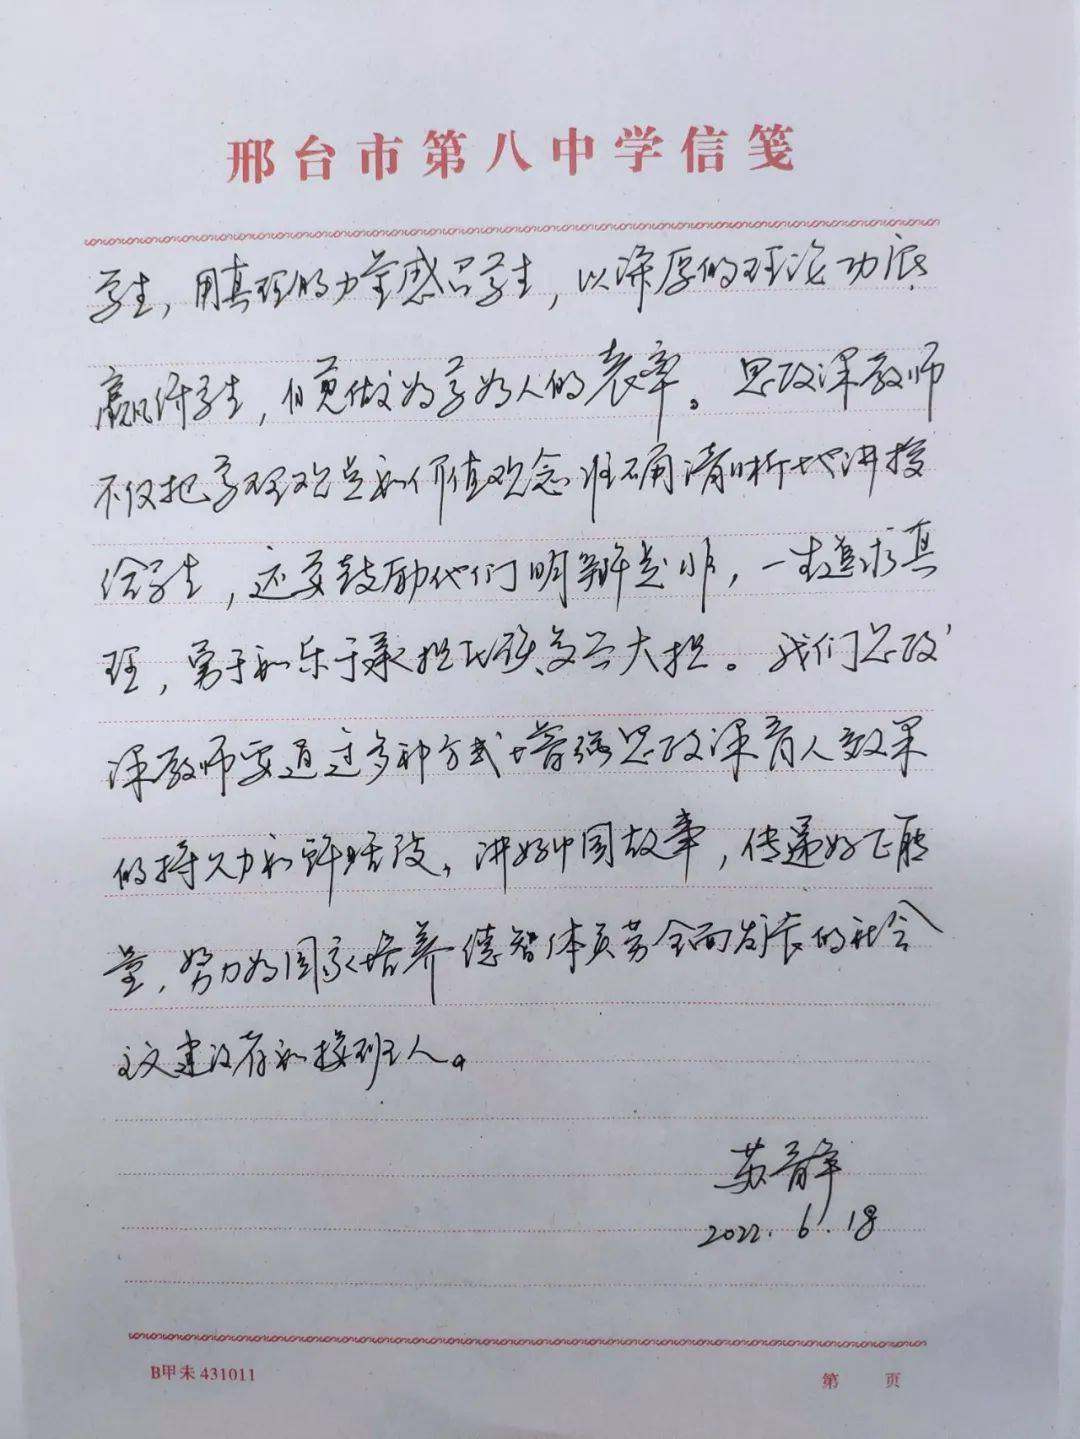 邢台市第八中学信笺
学生，用真理的力量感召学生，以深厚的理论功底
赢得学生，自觉做为学为人的表率。思政课教师
不仅把学理观点和价值观念准确清晰地讲授
给学生，还要鼓励他们明辨是非，一生追求真
理，勇于和乐于承担民族复兴大担。我们思政
课教师要通过多种方式增强思政课育人效果
的持久力和鲜活度、讲好中国故事，传递好正能
量，努力为国家培养德智体美劳全面发展的社会
主义建设者和接班人。
苏青峰
2022.6.18
B甲未 431011
第 页